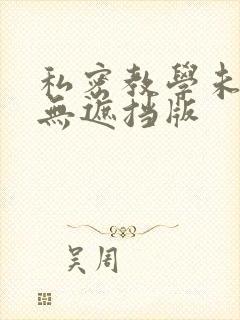 私密教學未
無遮挡版
吴周